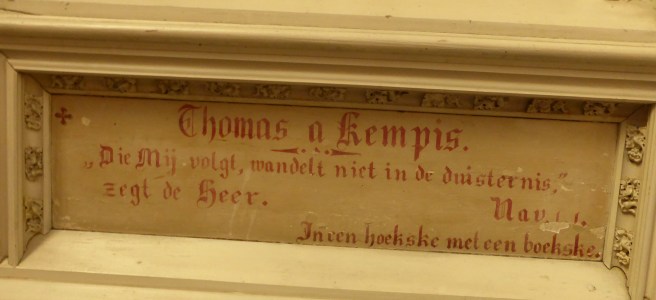 Thomas a Kempis.
„Die Mij volgt, wandelt niet in de duisternis,"
zegt de Heer.
Nav. 1. 1.
In een hoekske met een boekske.